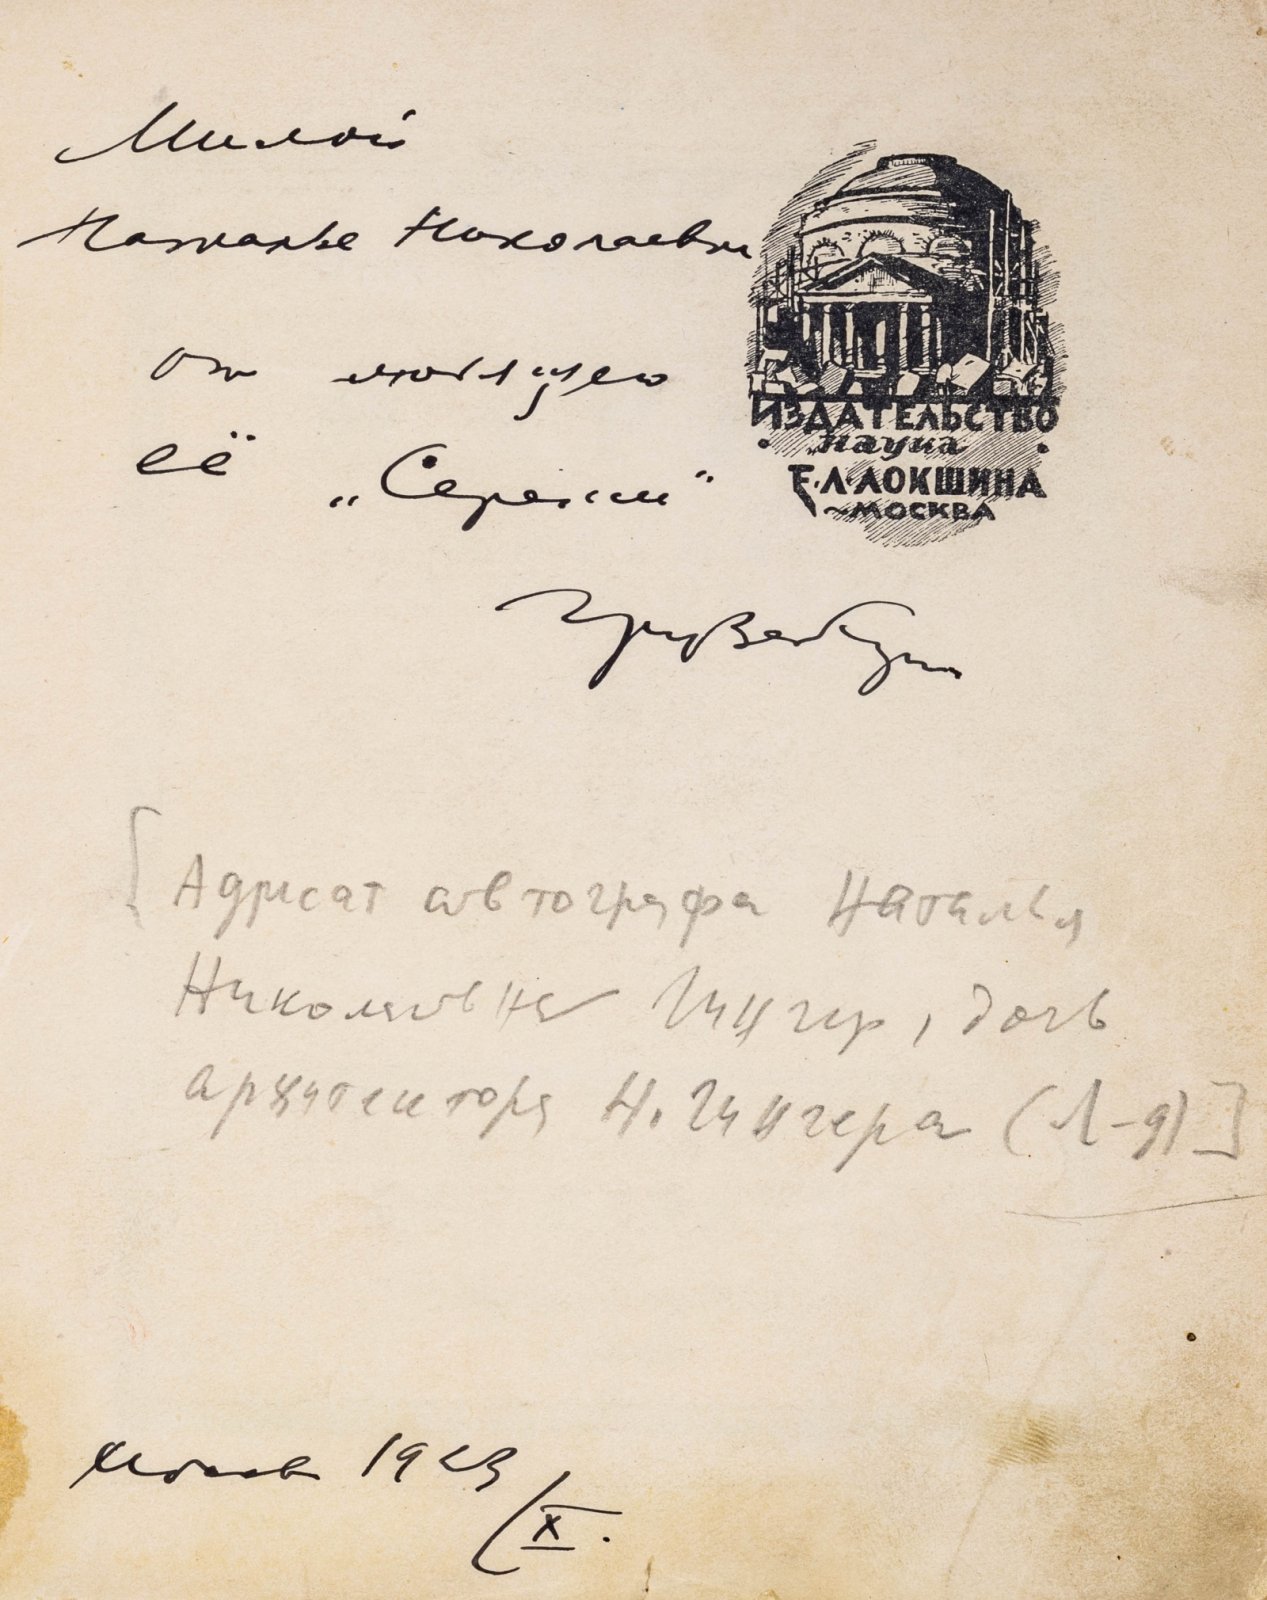 Милой
Наталье Николаевне
от любящего
её „Сережи"
ИЗДАТЕЛЬСТВО
„наука
Е.Л.ЛОКШИНА
МОСКВА
[Адресат автографа Наталья
Николаевна Гингер, дочь
архитектора Н. Гингера (Л-д)]
Москва 1923
/X.